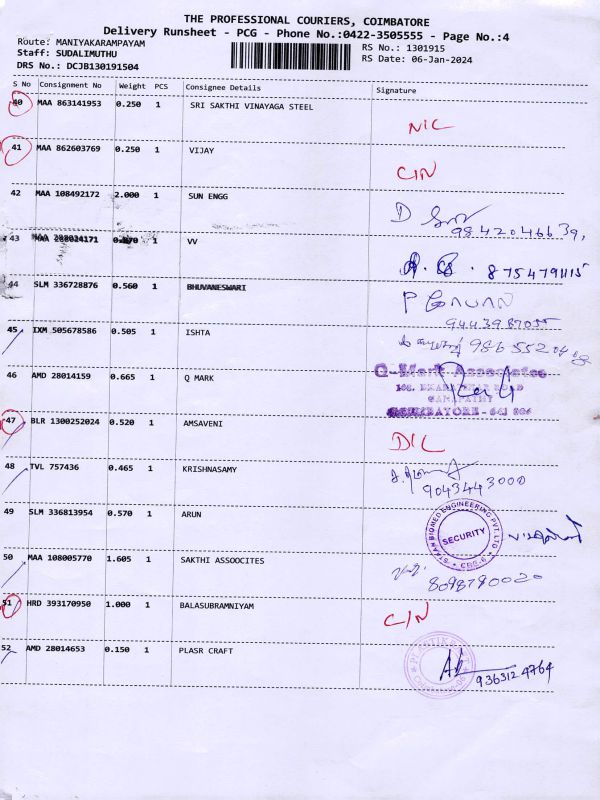 THE PROFESSIONAL COURIERS, COIMBATORE
Delivery Runsheet - PCG - Phone No.:0422-3505555 - Page No.:4
Route: MANIYAKARAMPAYAM
Staff: SUDALIMUTHU
DRS No.: DCJB130191504
RS No.: 1301915
RS Date: 06-Jan-2024
S No Consignment No Weight PCS Consignee Details Signature
40 MAA 863141953 0.250 1 SRI SAKTHI VINAYAGA STEEL
NIC
41 MAA 862603769 0.250 1 VIJAY
CIN
42 MAA 108492172 2.000 1 SUN ENGG
D
9842046639,
43 MAA 1 VV
8754791115
44 SLM 336728876 0.560 1 BHUVANESWARI
P
9443987055
45 IXM 505678586 0.505 1 ISHTA
46 AMD 28014159 0.665 1 Q MARK
Q-Mark Associates
GANAPATHY
COIMBATORE - 641 006
47 BLR 1300252024 0.520 1 AMSAVENI
DIL
48 TVL 757436 0.465 1 KRISHNASAMY
9043443000
49 SLM 336813954 0.570 1 ARUN
ENGINEERING PVT.LTD
SECURITY
CBE-6
50 MAA 108005770 1.605 1 SAKTHI ASSOOCITES
8098790020
51 HRD 393170950 1.000 1 BALASUBRAMNIYAM
CIN
52 AMD 28014653 0.150 1 PLASR CRAFT
9363124764